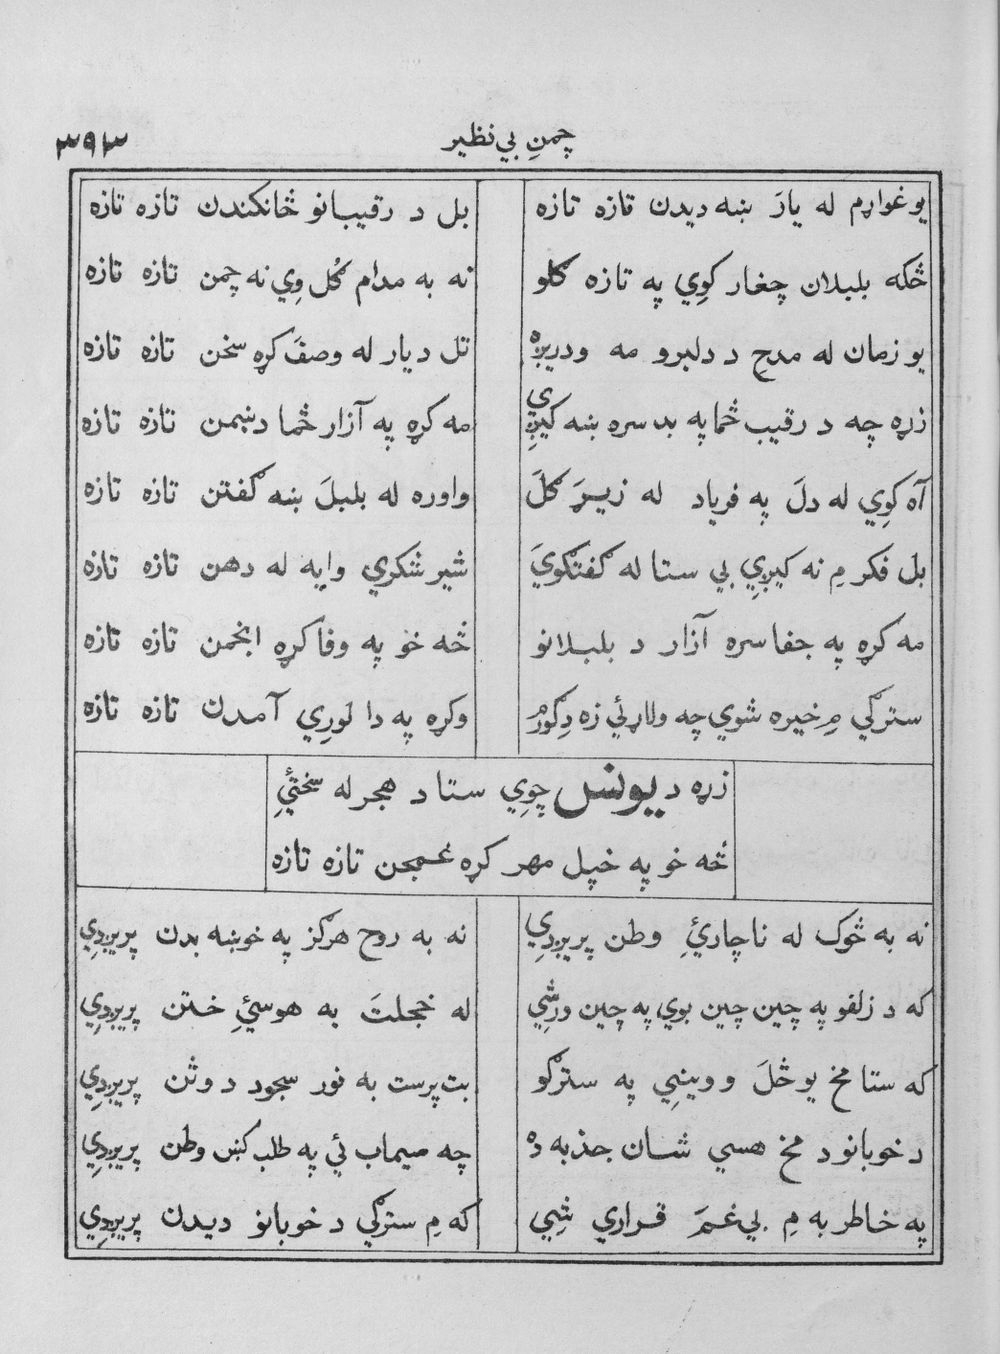 چمنِ بي نظير
٣٩٣
يو غواړم له يارَ ښه ديدن تازه تازه
بل د رقيبانو ځانکندن تازه تازه
ځکه بلبلان چغار کوِي په تازه گلو
نه به مدام گُل وِي نه چمن تازه تازه
يو زمان له مدح د دلبرو مه ودريږه
تل د يار له وصفَ کړه سخن تازه تازه
زړه چه د رقيب څما په بد سره ښه کيږِي
مه کړه په آزار څما دښمن تازه تازه
آه کوِي له دلَ په فرياد له زيړَ گلَ
واوره له بلبلَ ښه گفتن تازه تازه
بل فکر مِ نه کيږِي بي ستا له گفتگويَ
شير شکري وايه له دهن تازه تازه
مه کړه په جفا سره آزار د بلبلانو
څه خو په وفا کړه انجمن تازه تازه
سترگي مِ خيره شوي چه ولاړئي زه دِ گورم
وکړه په دا لورِي آمدن تازه تازه
زړه د يونس چوِي ستا د هجر له سختئِ
څه خو په خپل مهر کړه غمجن تازه تازه
نه به څوک له ناچارئِ وطن پريږدِي
نه به روح هرگز په خوښه بدن پريږدِي
که د زلفو په چين چين بوي په چين ورشِي
له خجلتَ به هوسئِ ختن پريږدِي
که ستا مخ يو ځلَ ووينِي په سترگو
بت پرست به نور سجود د وثن پريږدِي
د خوبانو د مخ هسي شان جذبه ده
چه سيماب ئي په طلب کښ وطن پريږدِي
په خاطر به مِ بي غمَ قراري شِي
که مِ سترگي د خوبانو ديدن پريږدِي